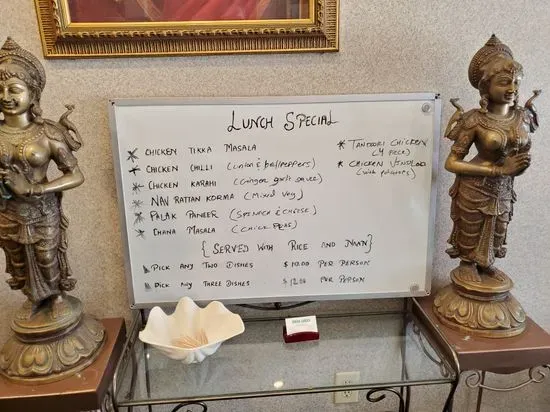 LUNCH SPECIAL
* CHICKEN TIKKA MASALA
* CHICKEN CHILLI (onion & bellpeppers)
* CHICKEN KARAHI (Ginger garlic sauce)
* NAV RATTAN KORMA (Mixed veg)
* PALAK PANEER (SPINACH & CHEESE)
* CHANA MASALA (CHICK PEAS)
{SERVED WITH RICE AND NAAN}
PICK ANY TWO DISHES $10.00 PER PERSON
PICK ANY THREE DISHES $12.00 PER PERSON
* TANDOORI CHICKEN
(4 PECE)
* CHICKEN VINDLOO
(with potatoes)